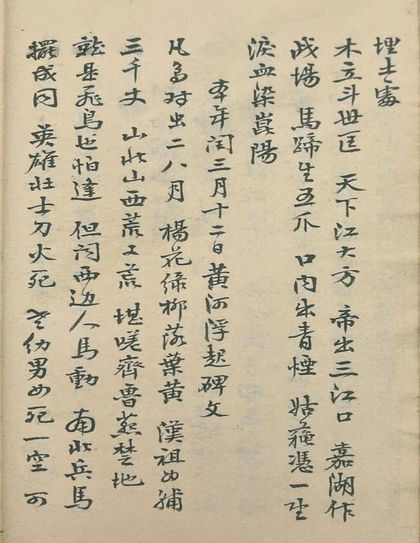 埋處
木立斗世匡 天下江大方 帝出三江口 嘉湖作
战場 馬蹄生五爪 口内青煙 姑蘓憑一
淚血染崑陽
本年闰三月十二日黄河浮起碑文
凡鳥对出二八月 楊花绿柳落葉黄 漢祖女補
三千丈 山北山西荒又荒 堪嗟齊魯燕楚地
就是飛鳥也怕逢 但闻西边人馬動 南北兵馬
擺成 英雄壮士刀火死 老幼男女死一空 可